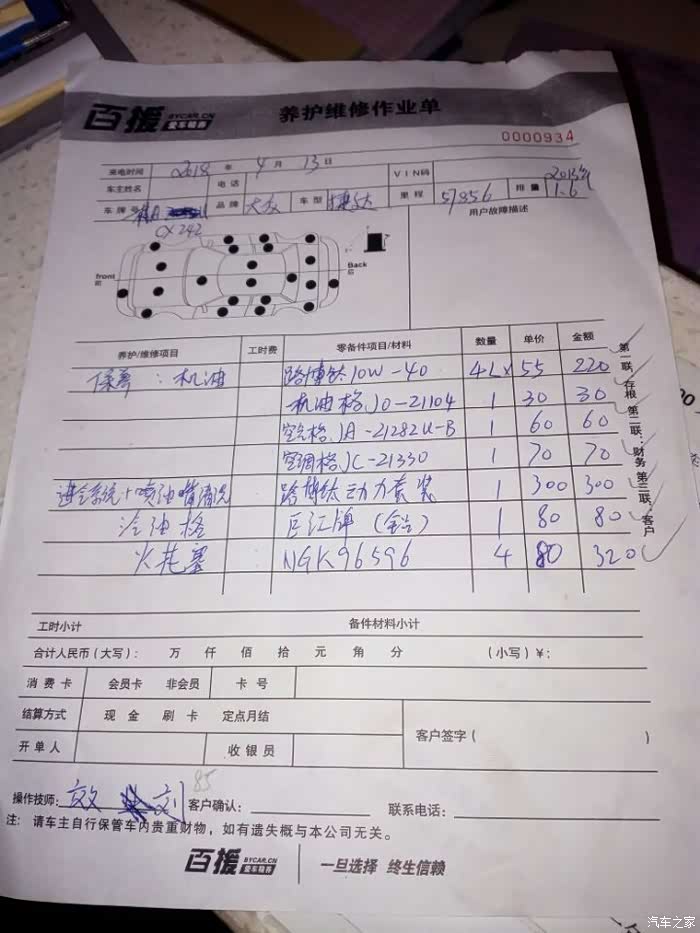 百援 BYCAR.CN 爱车养护 养护维修作业单
0000934
来电时间 2018 年 4 月 13 日
车主姓名 电话 VIN码 2013年
车牌号 品牌 大众 车型 捷达 里程 57856 排量 1.6
CX242 用户故障描述
front 前 Back 后
养护/维修项目 工时费 零备件项目/材料 数量 单价 金额
保养：机油 路博钛10W-40 4L× 55 220
机油格JO-21104 1 30 30
空气格JA-21282U-B 1 60 60
空调格JC-21330 1 70 70
进气系统+喷油嘴清洗 路博钛动力套装 1 300 300
汽油格 巨江牌 1 80 80
火花塞 NGK96596 4 80 320
第一联：存根 第二联：财务 第三联：客户
工时小计 备件材料小计
合计人民币（大写）： 万 仟 佰 拾 元 角 分 （小写）¥：
消费卡 会员卡 非会员 卡号
结算方式 现金 刷卡 定点月结
客户签字（ ）
开单人 收银员
85
操作技师： 刘 客户确认： 联系电话：
注：请车主自行保管车内贵重财物，如有遗失概与本公司无关。
百援 BYCAR.CN 爱车养护 一旦选择 终生信赖
汽车之家